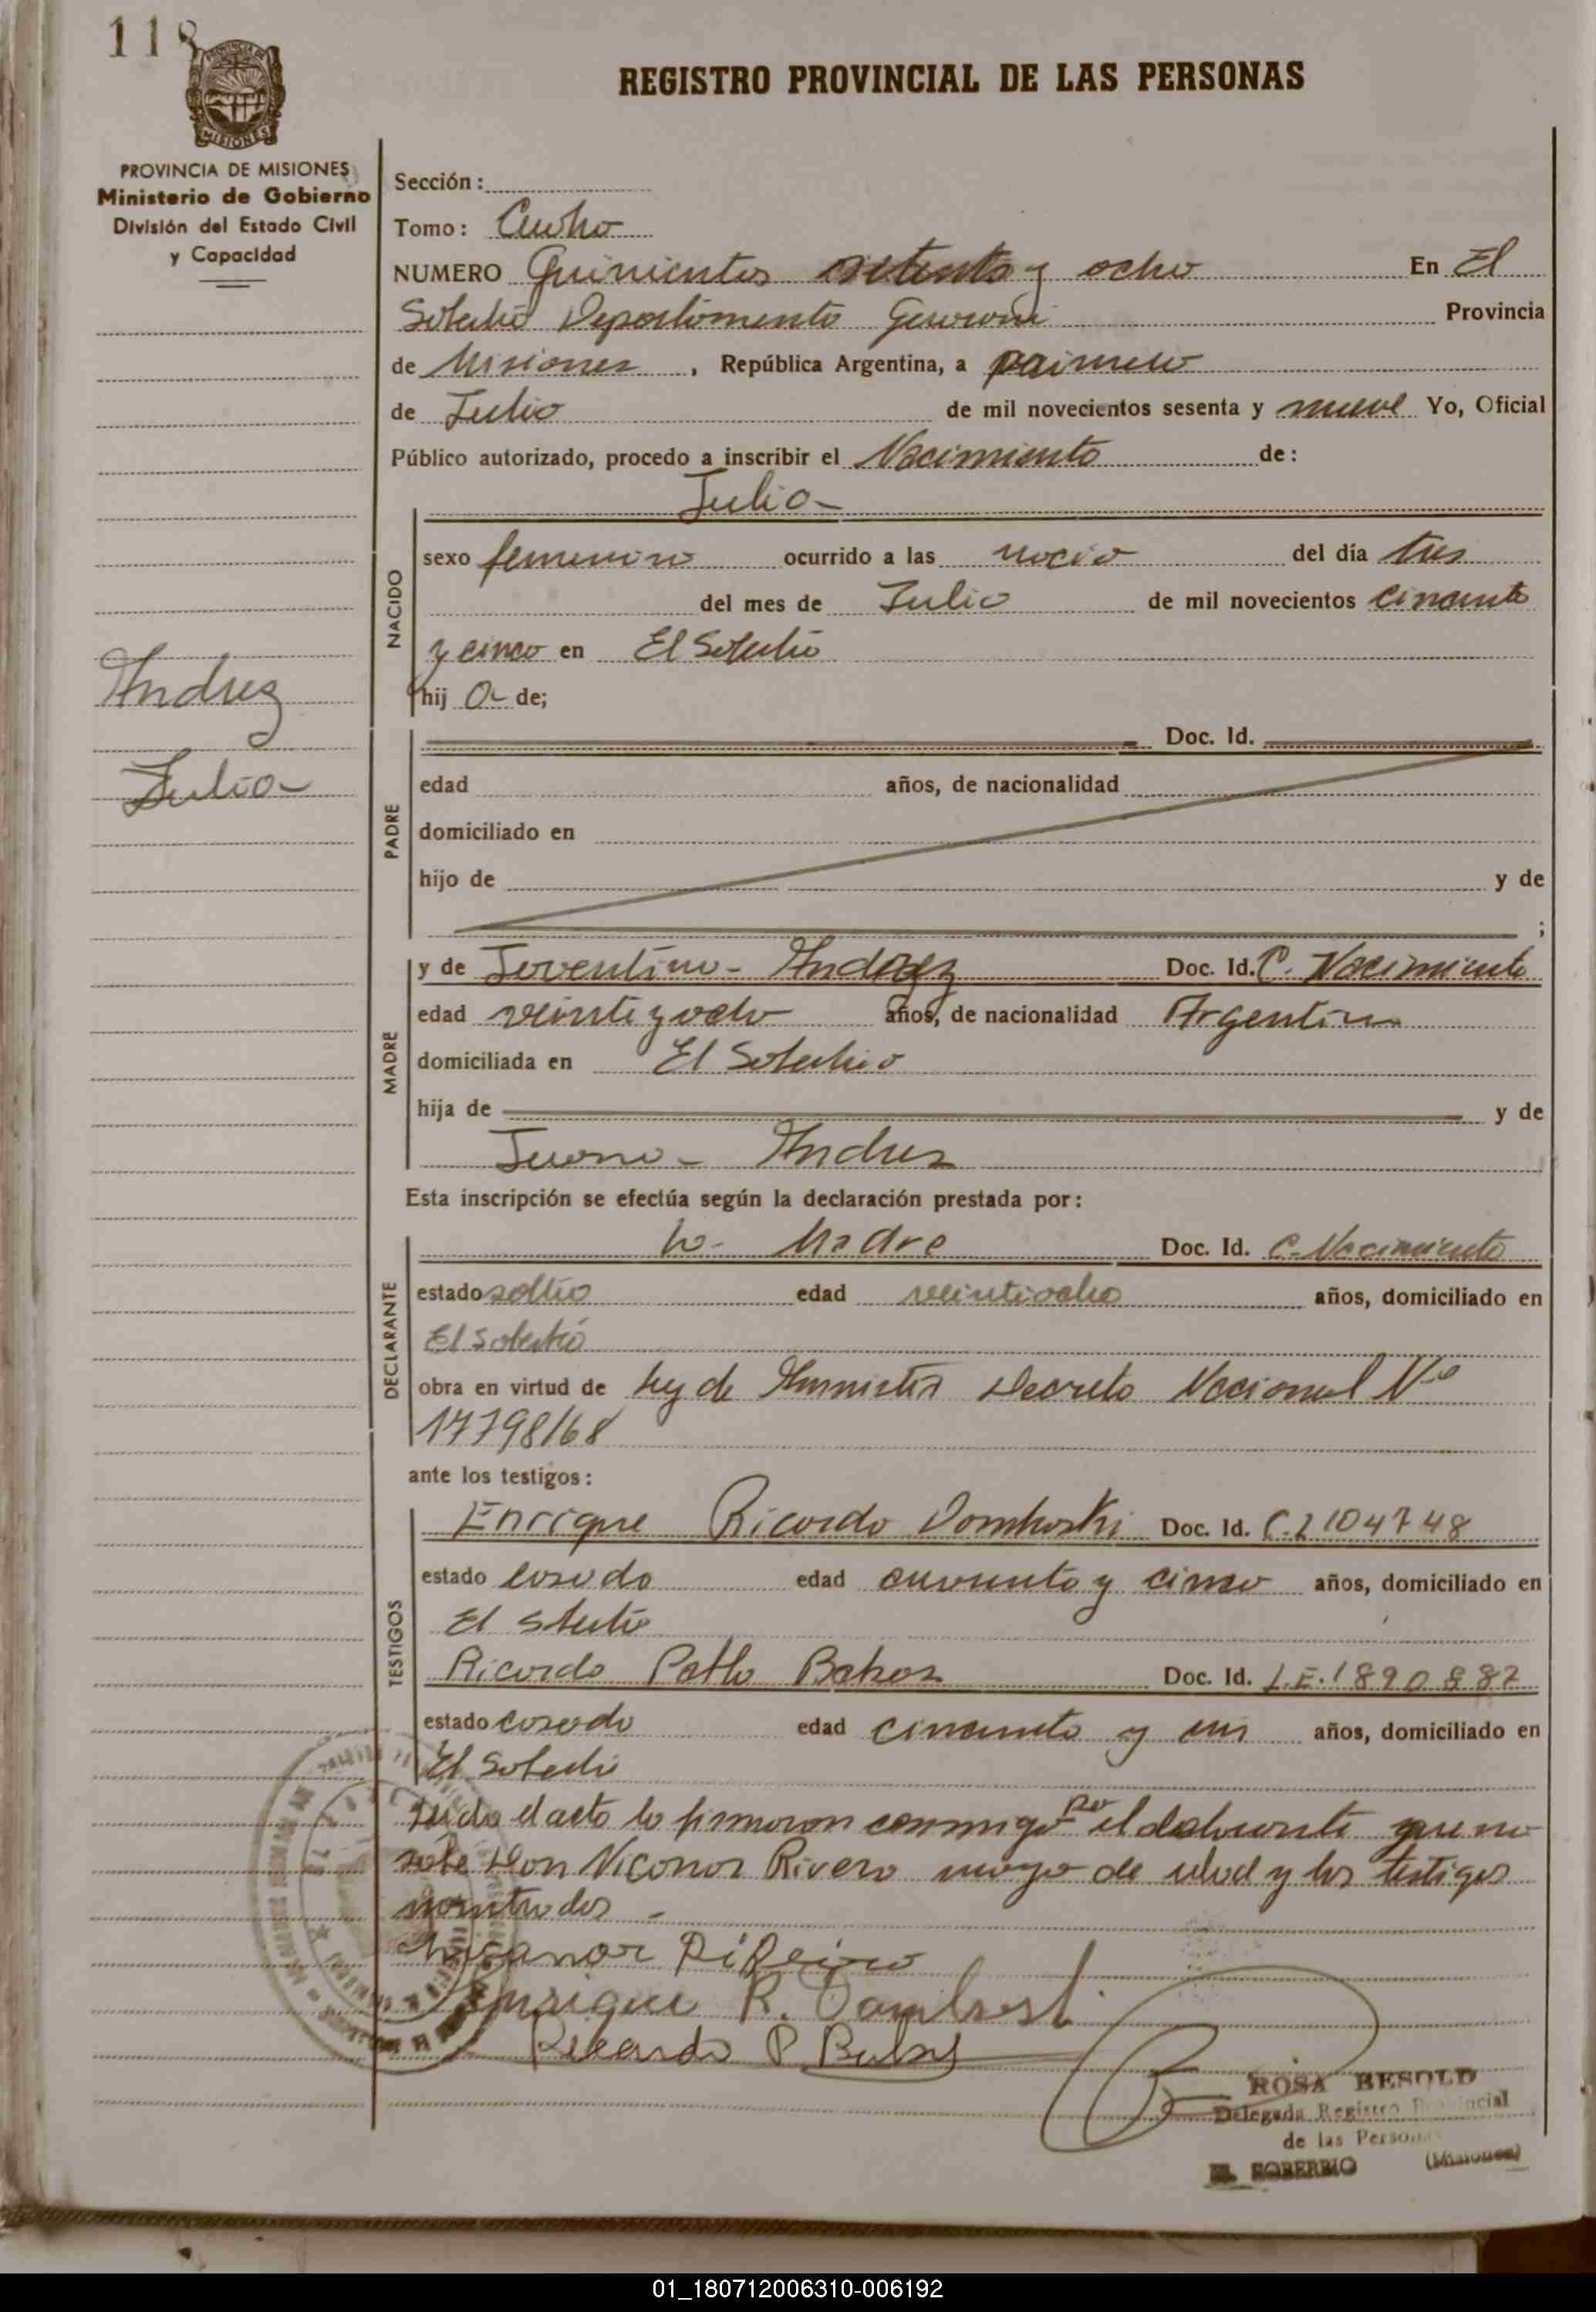 118
REGISTRO PROVINCIAL DE LAS PERSONAS
PROVINCIA DE MISIONES
Ministerio de Gobierno
División del Estado Civil
y Capacidad
Sección:
Tomo: Cuatro
NUMERO Quinientos setenta y ocho En El
Soberbio Departamento Guarani Provincia
de Misiones, República Argentina, a primero
de Julio de mil novecientos sesenta y nueve Yo, Oficial
Público autorizado, procedo a inscribir el Nacimiento de:
Julia
NACIDO
sexo femenino ocurrido a las del día tres
del mes de Julio de mil novecientos cincuenta
y cinco en El Soberbio
hij a de;
Andrez
Julia
PADRE
Doc. Id.
edad años, de nacionalidad
domiciliado en
hijo de y de
;
MADRE
y de Joventina Andrez Doc. Id. C. Nacimiento
edad veinti y ocho años, de nacionalidad Argentina
domiciliada en El Soberbio
hija de y de
Juana Andrez
Esta inscripción se efectúa según la declaración prestada por:
DECLARANTE
la Madre Doc. Id. C. Nacimiento
estado edad veintiocho años, domiciliado en
El Soberbio
obra en virtud de Ley de Amnistia Decreto Nacional Nº
17798/68
ante los testigos:
TESTIGOS
Enrique Ricardo Domboski Doc. Id. C.I 104748
estado casado edad cuarenta y cinco años, domiciliado en
El Soberbio
Ricardo Pablo Doc. Id. L.E. 1890882
estado casado edad cincuenta y un años, domiciliado en
El Soberbio
Leida el acta la firmaron conmigo por el declarante que no
sabe Don Niconor Rivero mayor de edad y los testigos
nombrados
Nicanor Ribeiro
Enrique R. Domboski
Ricardo P
ROSA BESOLD
Delegada Registro Provincial
de las Personas
EL SOBERBIO (Misiones)
01_180712006310-006192